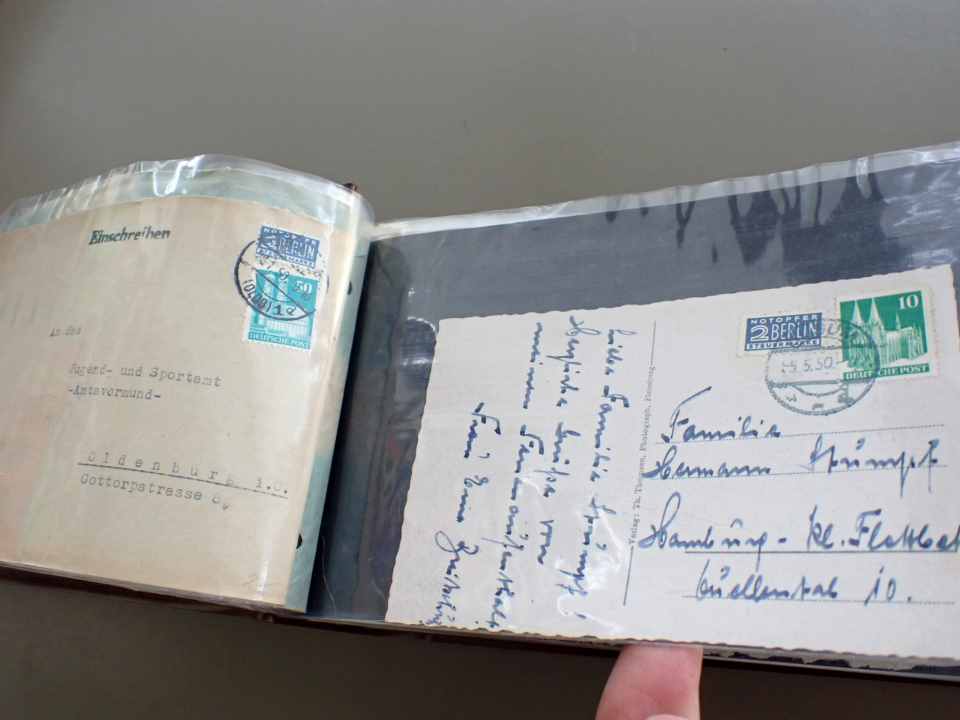 Einschreiben
NOTOPFER
2 BERLIN
STEUERMARKE
50
DEUTSCHE POST
(OLDB) 1
An das
Jugend- und Sportamt
-Amtsvormund-
Oldenburg i.O.
Gottorpstrasse 8
Liebe Familie Stümpf!
Herzliche Grüße von
meinem
Frau Erna
Verlag: Th. Thomsen, Photograph, Flensburg
NOTOPFER
2 BERLIN
STEUERMARKE
10
DEUTSCHE POST
-5.5.50.-
Familie
Hermann Stümpf
Hamburg - Kl. Flottbek
Quellental 10.